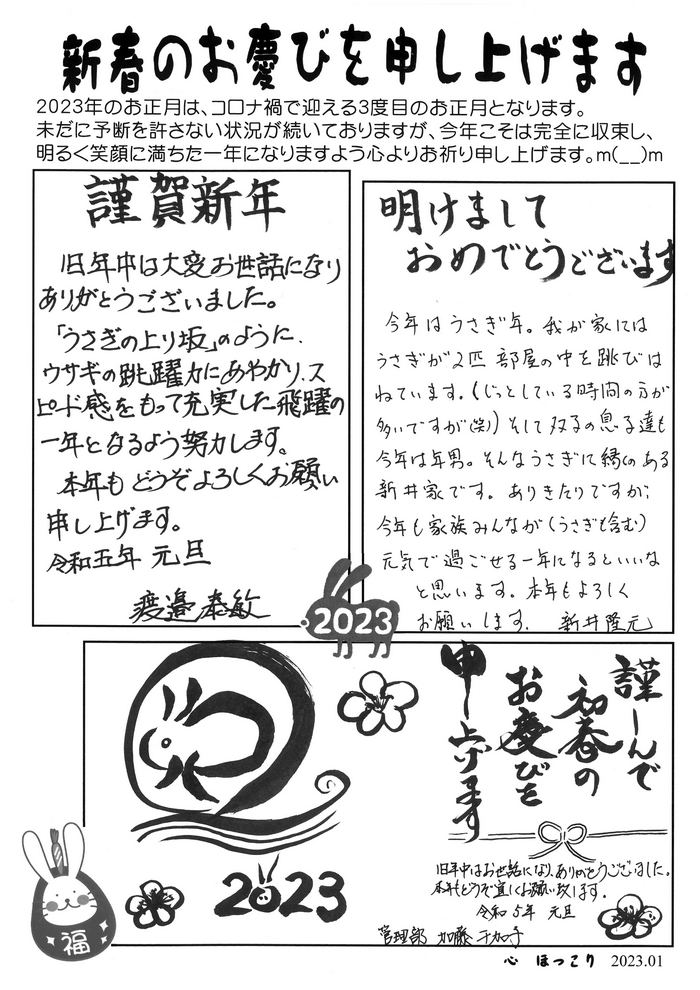 新春のお慶びを申し上げます
2023年のお正月は、コロナ禍で迎える3度目のお正月となります。
未だに予断を許さない状況が続いておりますが、今年こそは完全に収束し、
明るく笑顔に満ちた一年になりますよう心よりお祈り申し上げます。m(__)m
謹賀新年
旧年中は大変お世話になり
ありがとうございました。
「うさぎの上り坂」のように、
ウサギの跳躍力にあやかり、ス
ピード感をもって充実した飛躍の
一年となるよう努力します。
本年もどうぞよろしくお願い
申し上げます。
令和五年 元旦
渡邉泰敏
明けまして
おめでとうございます
今年はうさぎ年。我が家には
うさぎが2匹 部屋の中を跳びは
ねています。(じっとしている時間の方が
多いですが(笑)) そして双子の息子達も
今年は年男。そんなうさぎに縁のある
新井家です。ありきたりですが、
今年も家族みんなが(うさぎも含む)
元気で過ごせる一年になるといいな
と思います。本年もよろしく
お願いします。 新井隆元
2023
謹んで
初春の
お慶びを
申し上げます
旧年中はお世話になり、ありがとうございました。
本年もどうぞ宜しくお願い致します。
令和5年 元旦
管理部 加藤 千加子
2023
福
心 ほっこり 2023.01